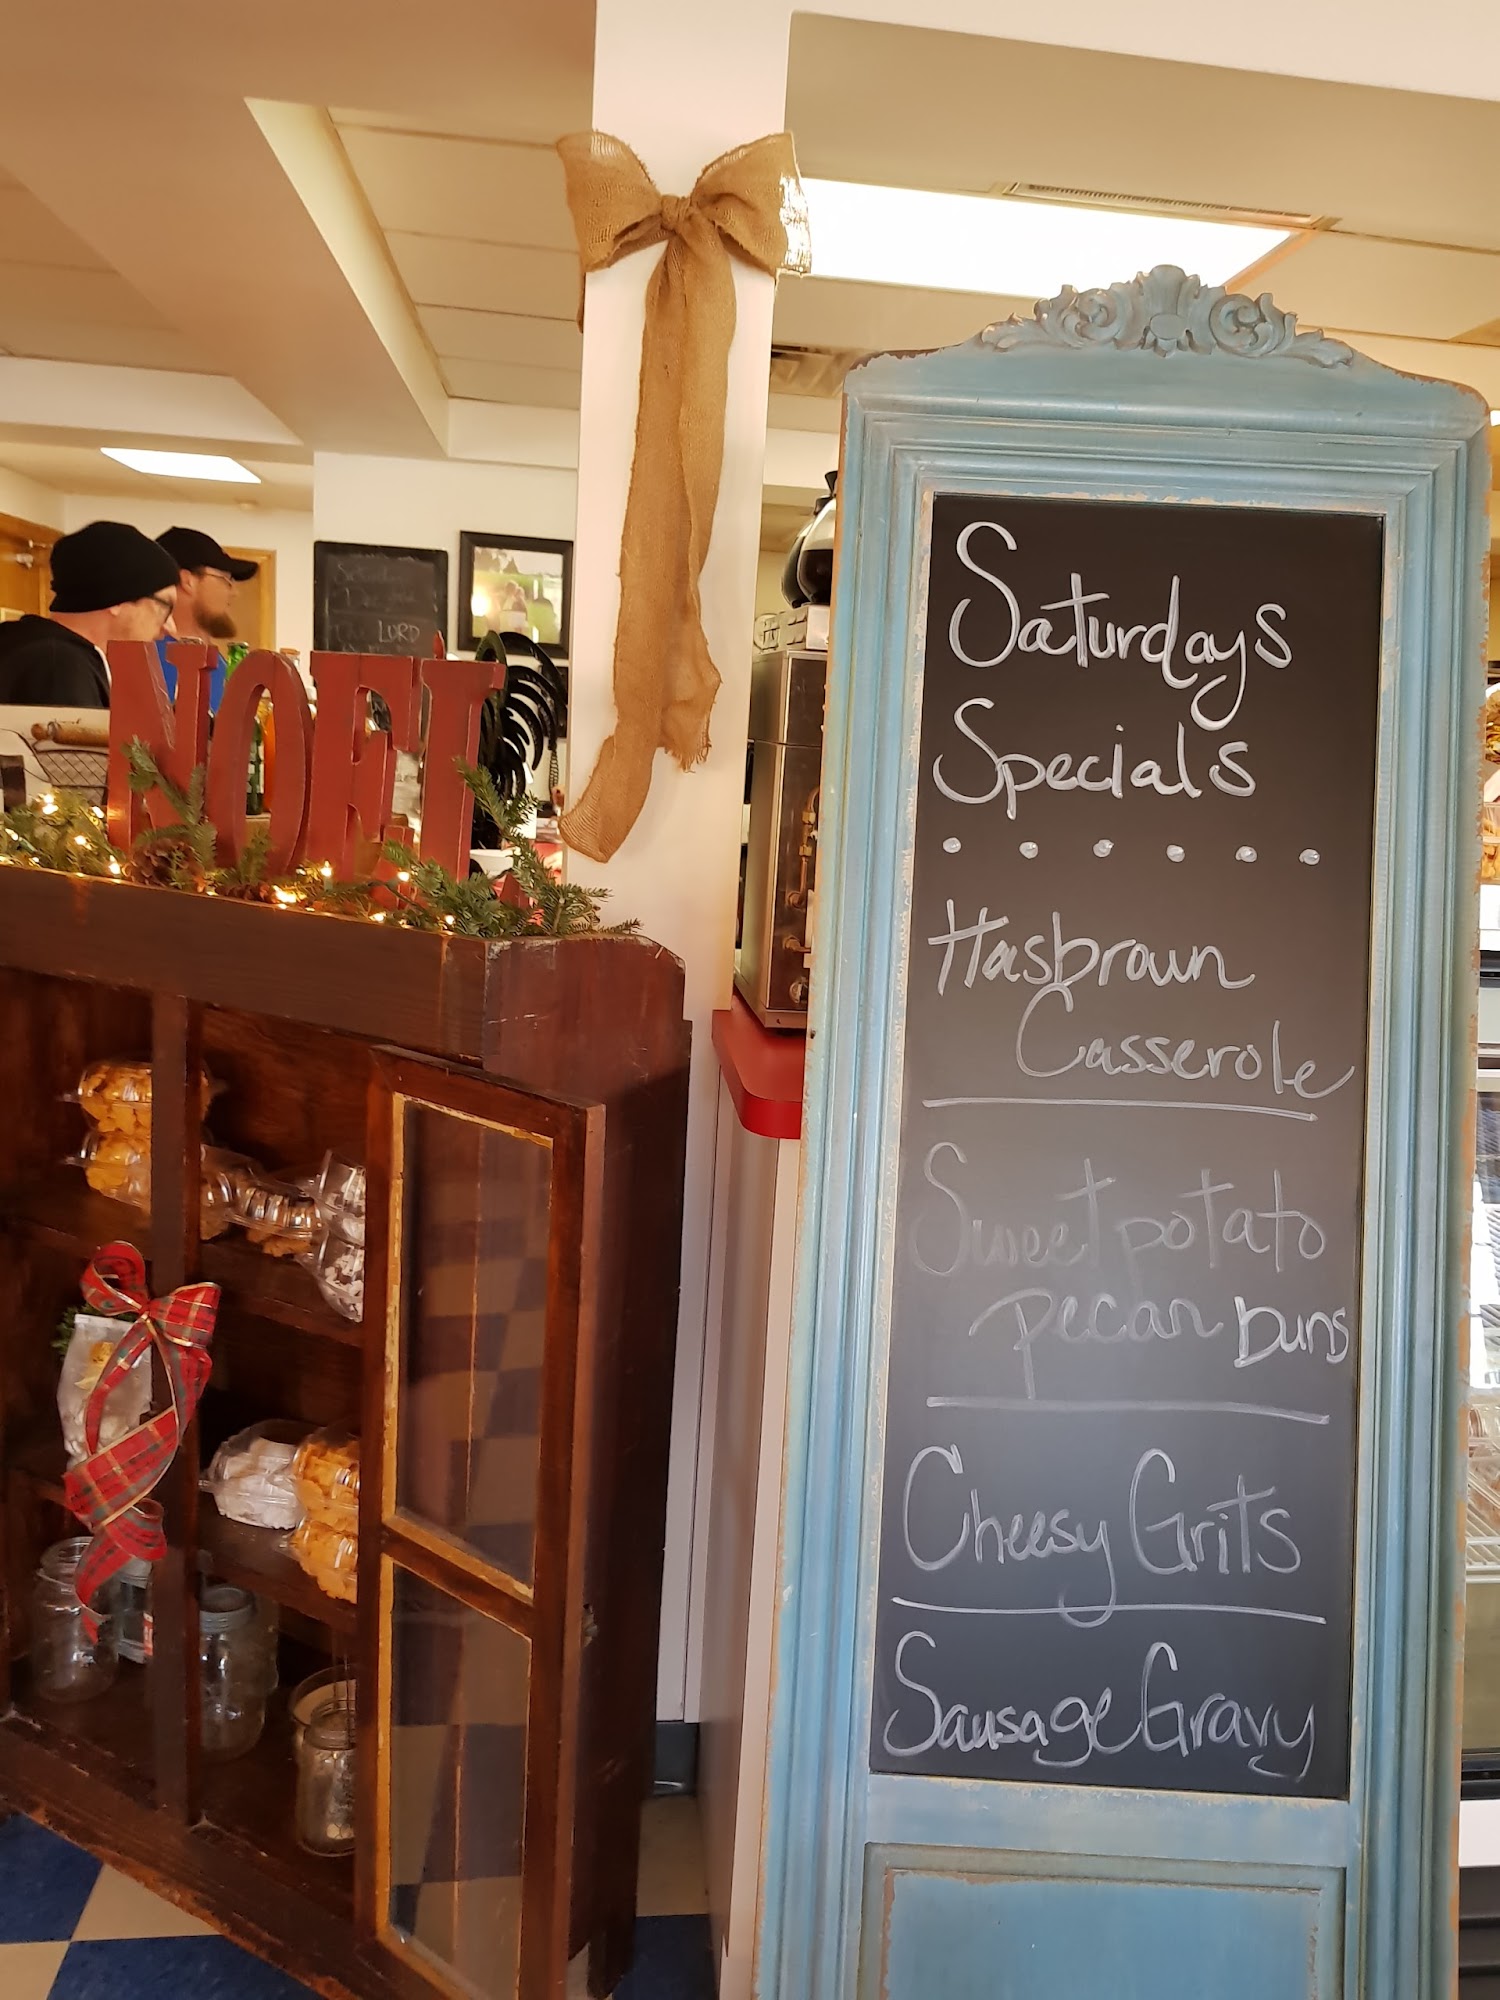 NOEL
Saturday
The LORD
Saturdays
Specials
Hasbrown
Casserole
Sweet potato
pecan buns
Cheesy Grits
Sausage Gravy